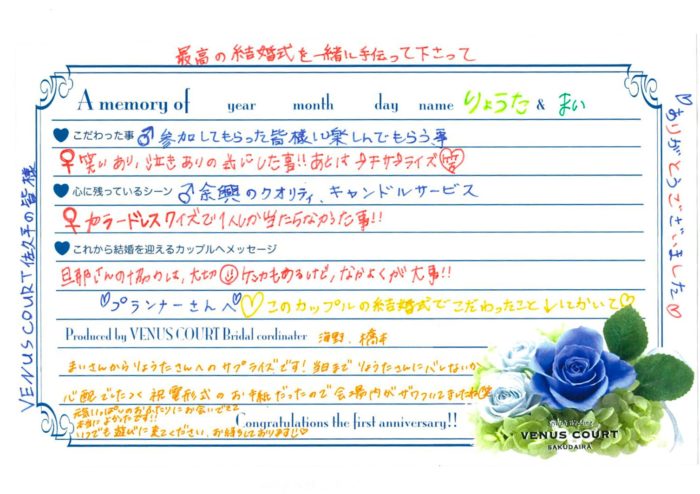 最高の結婚式を一緒に手伝って下さって
A memory of year month day name りょうた & まい
こだわった事 ♂ 参加してもらった皆様に楽しんでもらう事
♀ 笑いあり、泣きありの式にした事!! あとはプチサプライズ 笑
心に残っているシーン ♂ 余興のクオリティ、キャンドルサービス
♀ カラードレスクイズで1人しか当たらなかった事!!
これから結婚を迎えるカップルへメッセージ
旦那さんの協力は、大切 ケンカもあるけど、なかよくが大事!!
♡プランナーさんへ♡ このカップルの結婚式でこだわったこと↓にかいて♡
Produced by VENUS COURT Bridal cordinater 海野、橋本
まいさんからりょうたさんへのサプライズです! 当日までりょうたさんにバレないか
心配でしたつく 祝電形式のお手紙だったので会場内がザワついてましたね笑
元気いっぱいのおふたりにお会いできて
本当によかったです!!
いつでも遊びに来てください、お待ちしております♡
Congratulations the first anniversary!!
VENUS COURT 佐久平の皆様
♡ありがとうございました♡
VENUS COURT
SAKUDAIRA